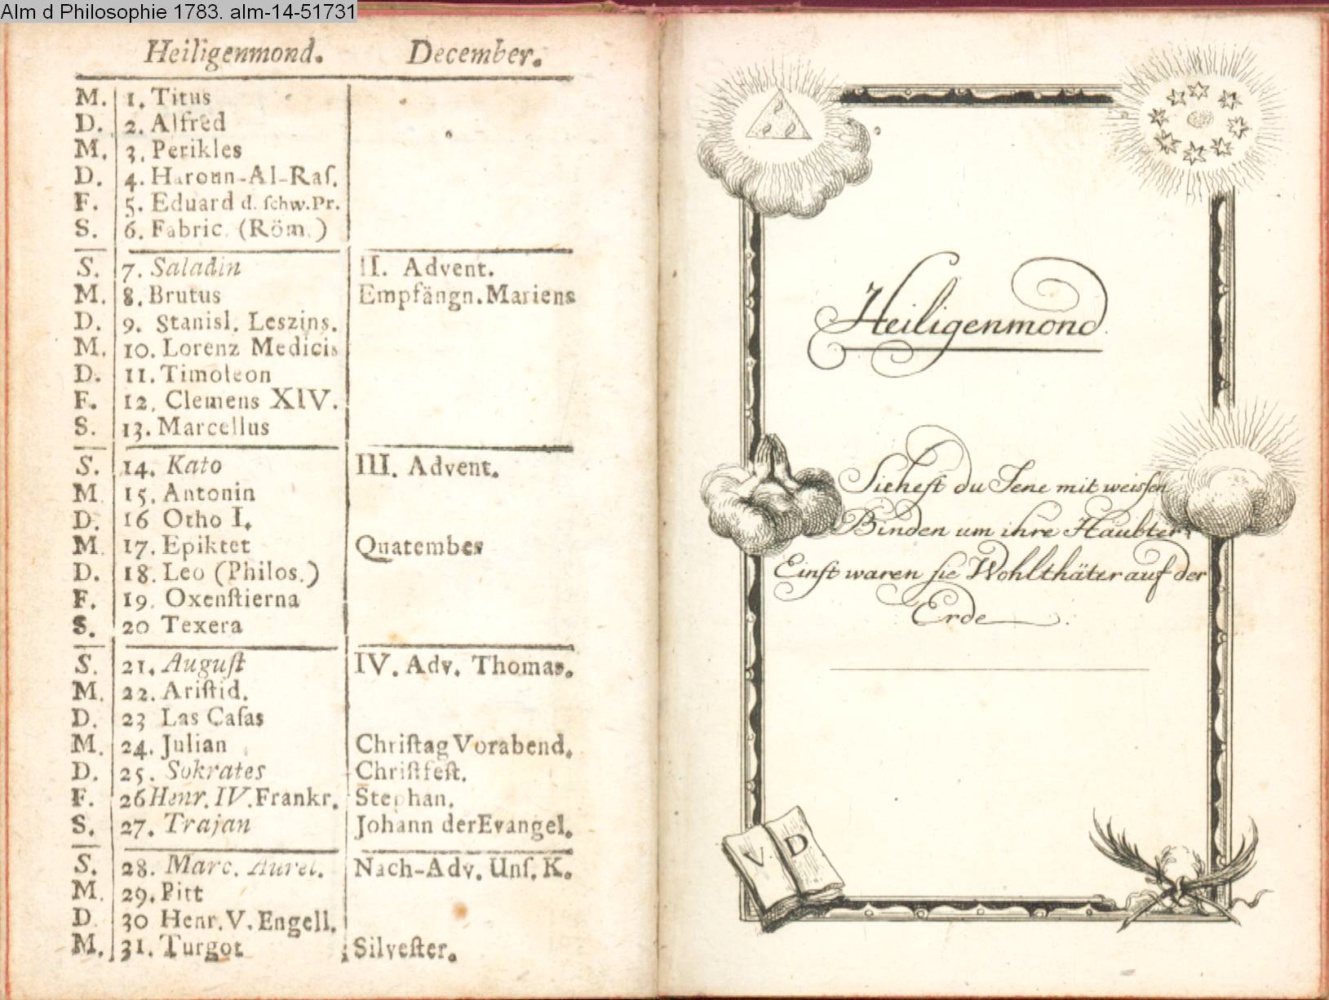 Alm d Philosophie 1783. alm-14-51731
Heiligenmond. December.
M. 1. Titus
D. 2. Alfred
M. 3. Perikles
D. 4. Haroun-Al-Raſ.
F. 5. Eduard d. ſchw.Pr.
S. 6. Fabric. (Röm.)
S. 7. Saladin II. Advent.
M. 8. Brutus Empfängn.Mariens
D. 9. Stanisl. Leszins.
M. 10. Lorenz Medicis
D. 11. Timoleon
F. 12. Clemens XIV.
S. 13. Marcellus
S. 14. Kato III. Advent.
M 15. Antonin
D. 16 Otho I.
M 17. Epiktet Quatember
D. 18. Leo (Philos.)
F. 19. Oxenſtierna
S. 20 Texera
S. 21. Auguſt IV. Adv. Thomas.
M. 22. Ariſtid.
D. 23 Las Caſas
M. 24. Julian Chriſtag Vorabend.
D. 25. Sokrates Chriſtfeſt.
F. 26 Henr. IV. Frankr. Stephan.
S. 27. Trajan Johann der Evangel.
S. 28. Marc. Aurel. Nach-Adv. Unſ. K.
M. 29. Pitt
D. 30 Henr. V. Engell.
M. 31. Turgot Silveſter.
Heiligenmond.
Sieheſt du Jene mit weiſſen
Binden um ihre Häubter,
Einſt waren ſie Wohlthäter auf der
Erde.
V. D